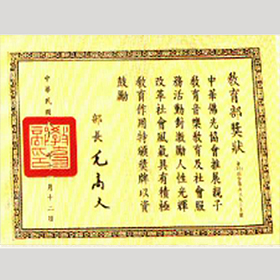 教育部獎狀
中華佛光協會推展親子
教育音樂教育及社會服
務活動對激勵人性光輝
改革社會風氣具有積極
教育作用特頒獎牌以資
鼓勵
部長 毛高文
中華民國
月十二日